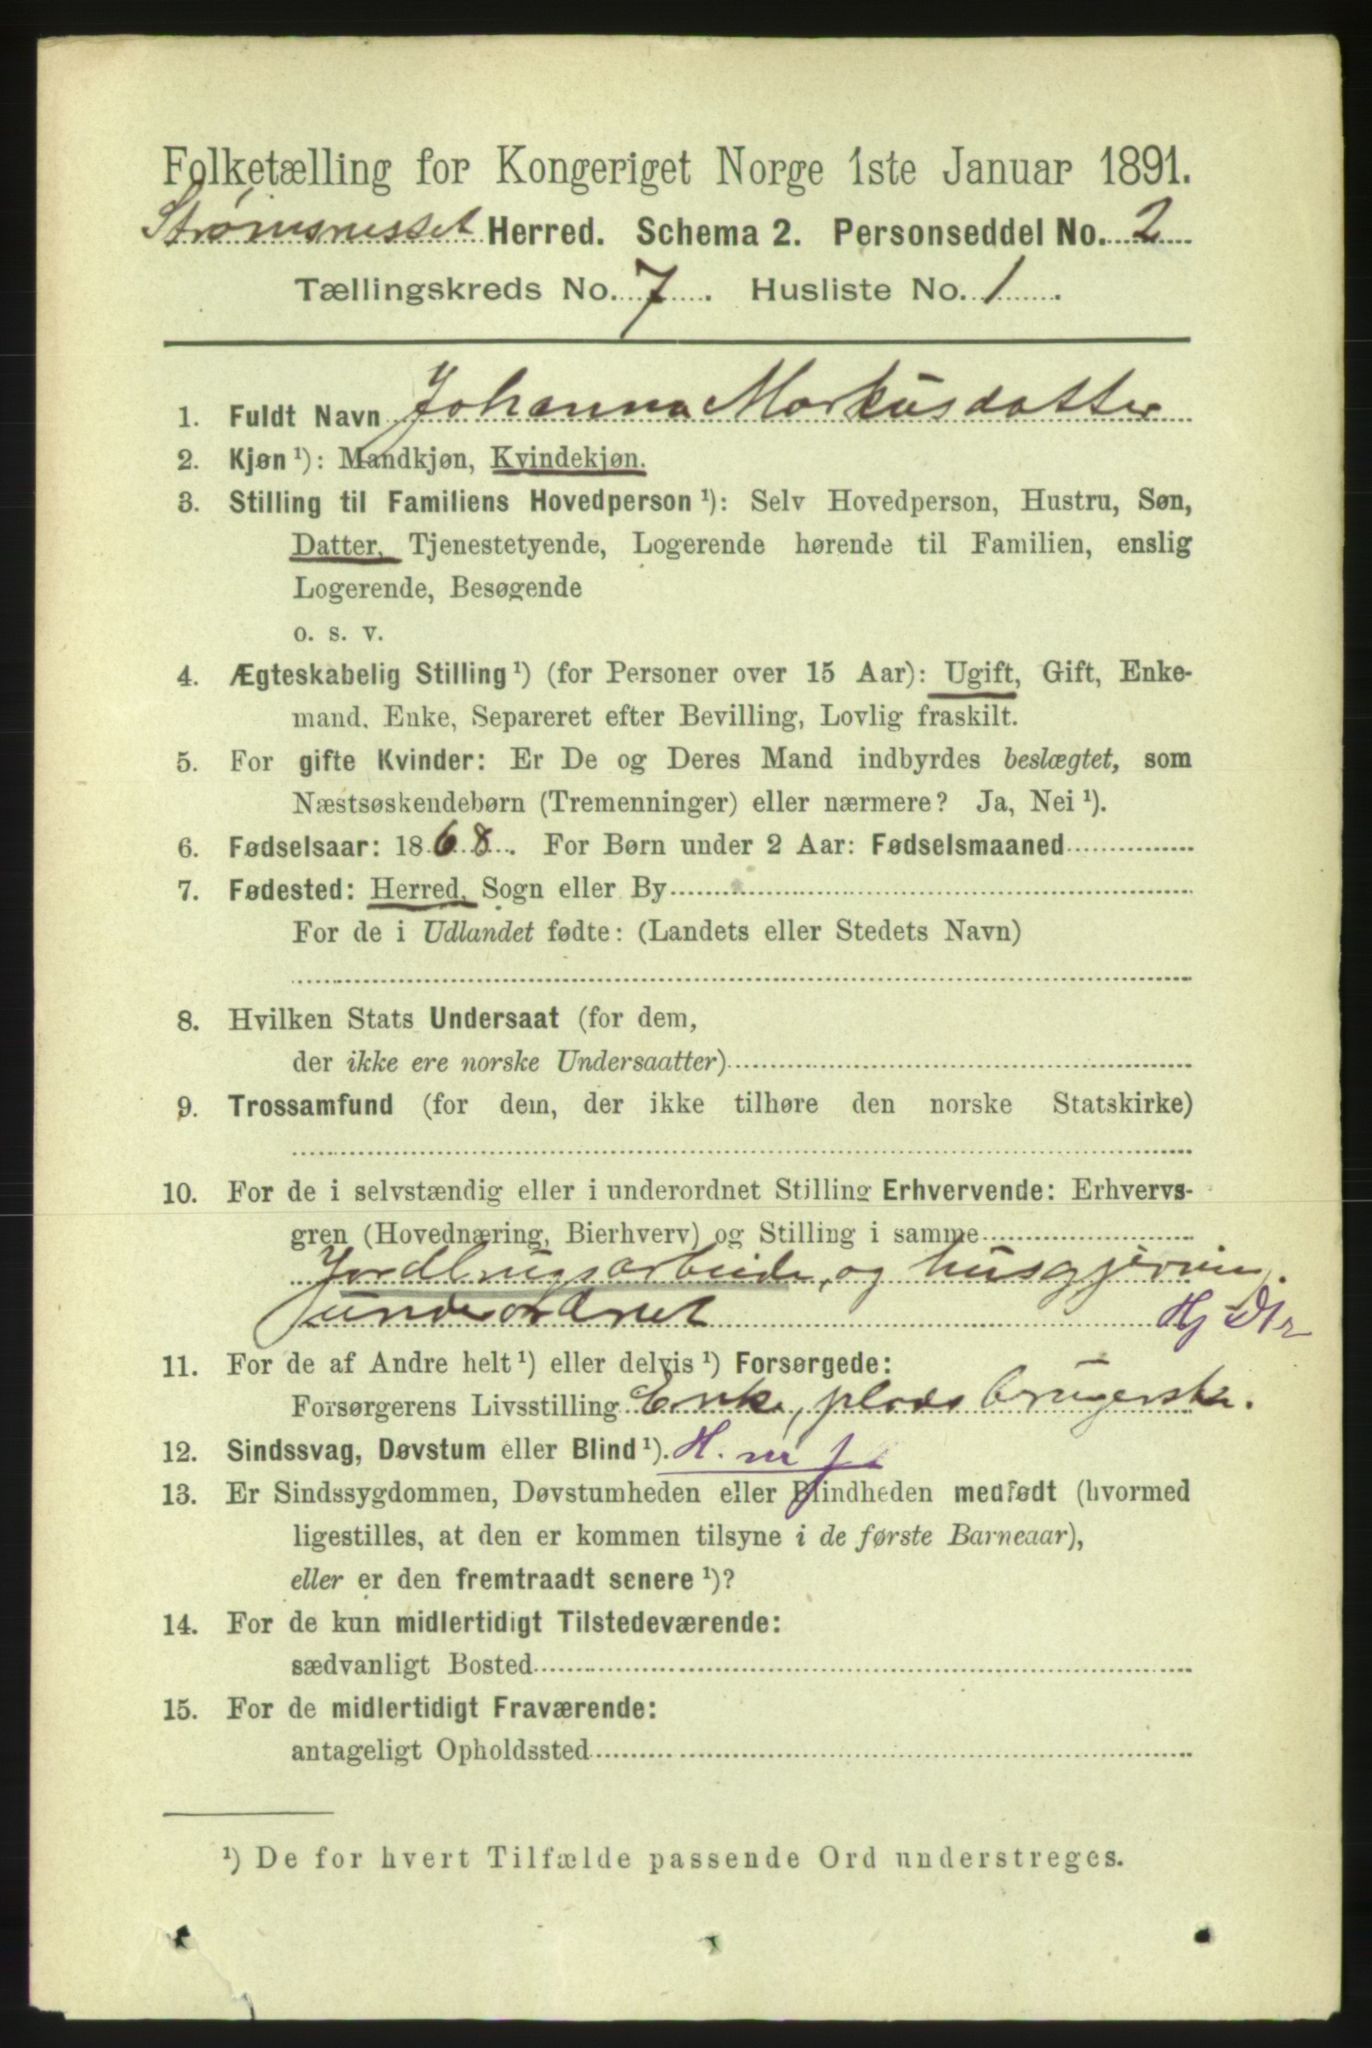 Folketælling for Kongeriget Norge 1ste Januar 1891.
Strømsnesset Herred. Schema 2. Personseddel No. 2
Tællingskreds No. 7. Husliste No. 1.
1. Fuldt Navn Johanna Markusdatter
2. Kjøn ¹): Mandkjøn, Kvindekjøn.
3. Stilling til Familiens Hovedperson ¹): Selv Hovedperson, Hustru, Søn,
Datter, Tjenestetyende, Logerende hørende til Familien, enslig
Logerende, Besøgende
o. s. v.
4. Ægteskabelig Stilling ¹) (for Personer over 15 Aar): Ugift, Gift, Enke-
mand, Enke, Separeret efter Bevilling, Lovlig fraskilt.
5. For gifte Kvinder: Er De og Deres Mand indbyrdes beslægtet, som
Næstsøskendebørn (Tremenninger) eller nærmere? Ja, Nei ¹).
6. Fødselsaar: 1868. For Børn under 2 Aar: Fødselsmaaned
7. Fødested: Herred, Sogn eller By
For de i Udlandet fødte: (Landets eller Stedets Navn)
8. Hvilken Stats Undersaat (for dem,
der ikke ere norske Undersaatter)
9. Trossamfund (for dem, der ikke tilhøre den norske Statskirke)
10. For de i selvstændig eller i underordnet Stilling Erhvervende: Erhvervs-
gren (Hovednæring, Bierhverv) og Stilling i samme
Jordbrugsarbeide, og husgjerning.
underordnet Hj Dtr
11. For de af Andre helt ¹) eller delvis ¹) Forsørgede:
Forsørgerens Livsstilling Enke, pladsbrugerske.
12. Sindssvag, Døvstum eller Blind ¹). H.
13. Er Sindssygdommen, Døvstumheden eller Blindheden medfødt (hvormed
ligestilles, at den er kommen tilsyne i de første Barneaar),
eller er den fremtraadt senere ¹)?
14. For de kun midlertidigt Tilstedeværende:
sædvanligt Bosted
15. For de midlertidigt Fraværende:
antageligt Opholdssted
¹) De for hvert Tilfælde passende Ord understreges.